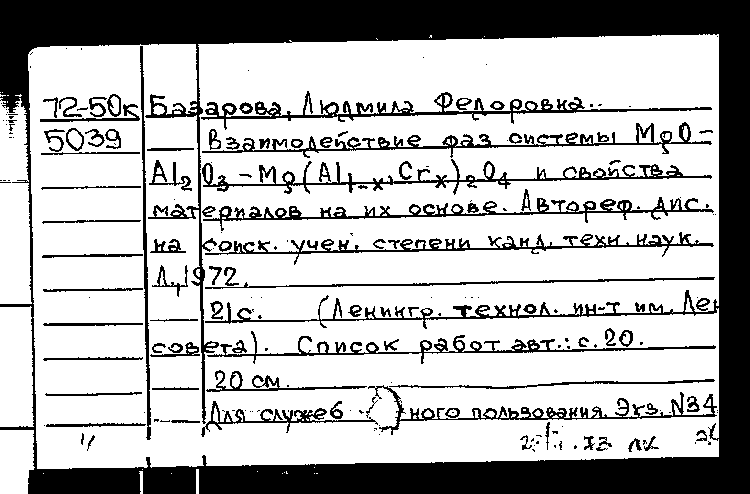 72-50к Базарова, Людмила Федоровна..
5039 Взаимодействие фаз системы MgO-
Al2O3-Mg(Al1-x,Crx)2O4 и свойства
материалов на их основе. Автореф. дис.
на соиск. учен. степени канд. техн. наук.
Л., 1972.
21с. (Ленингр. технол. ин-т им. Лен
совета). Список работ авт.: с. 20.
20 см.
Для служеб ного пользования. Экз. N34